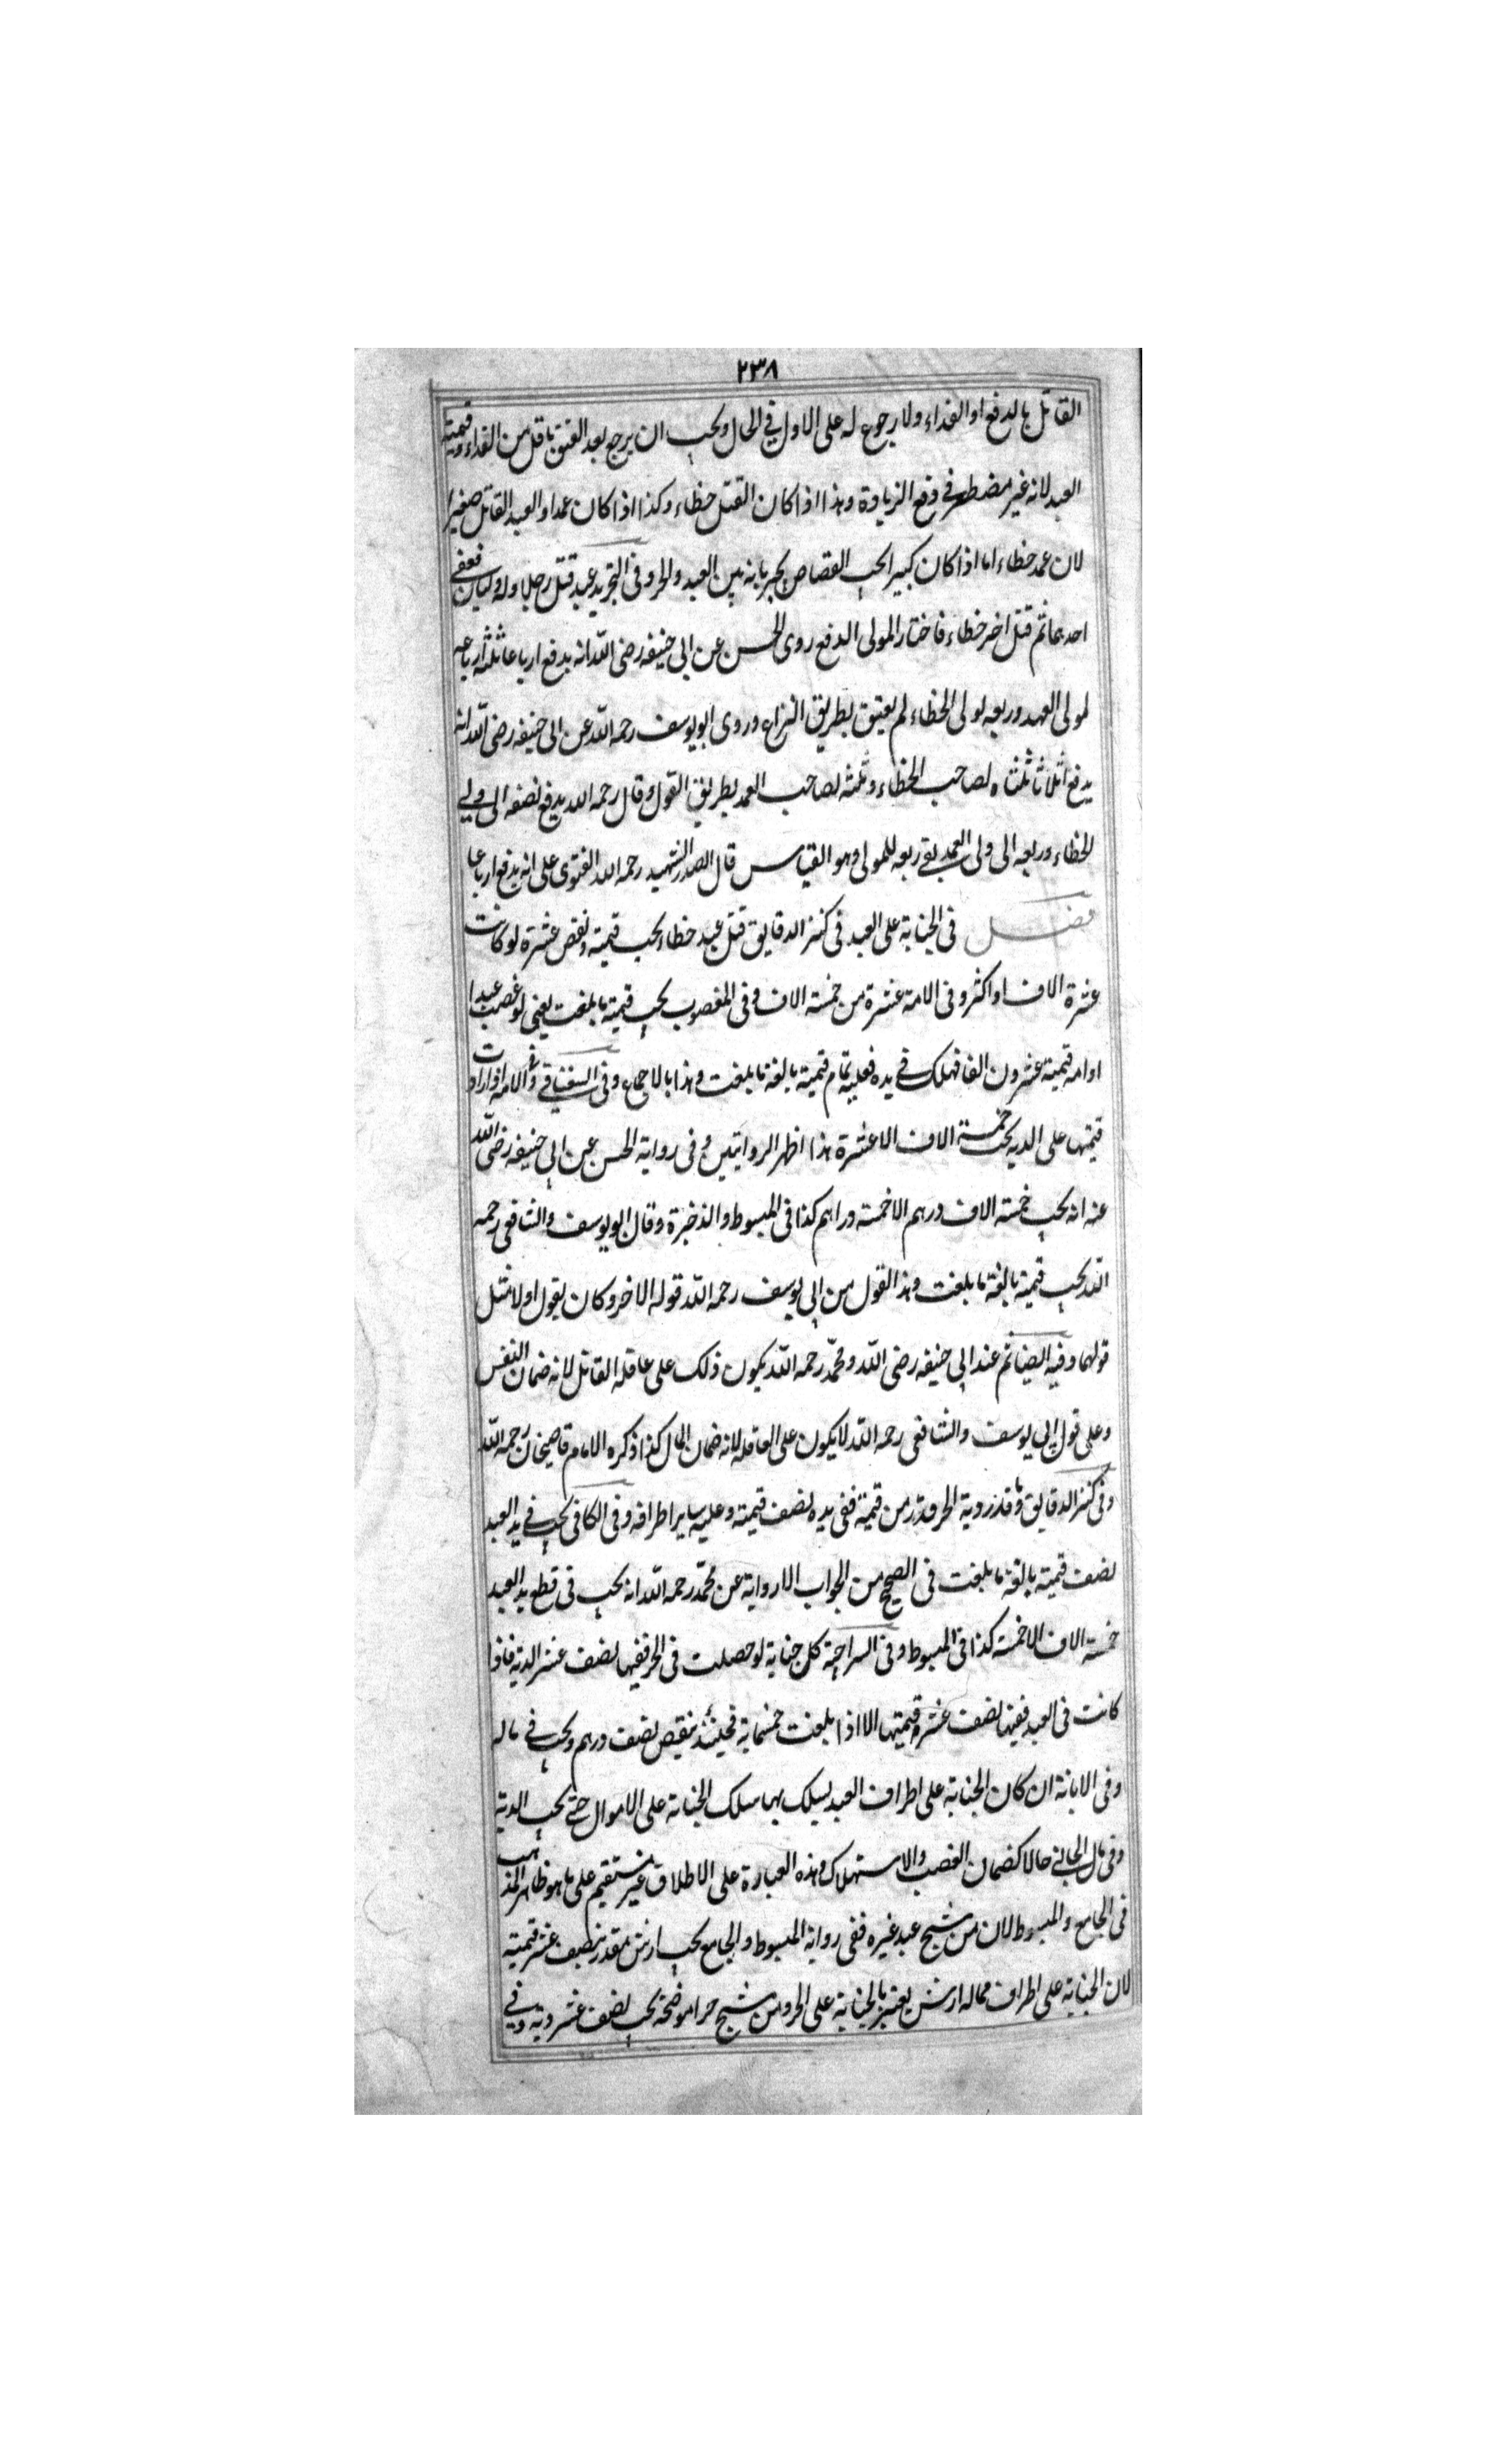 ٢٣٨
القاتل بالدفع او الفداء ولا رجوع له على الاول في الحال ويجب ان يرجع بعد العتق باقل من الفداء وقيمة
العبد لانه غير مضطر في دفع الزيادة وهذا اذا كان القتل خطاء وكذا اذا كان عمدا والعبد القاتل صغيرا
لان عمده خطاء اما اذا كان كبيرا يجب القصاص لجريانه بين العبد والحر وفي التجريد عبد قتل رجلا وله وليان فعفى
احدهما ثم قتل اخر خطاء فاختار المولى الدفع روى الحسن عن ابي حنيفه رضى الله انه يدفع ارباعا ثلثة ارباعه
لمولى العهد وربعه لولى الخطاء لم يعتق بطريق النزاع وروى ابو يوسف رحمه الله عن ابى حنيفه رضى الله انه
يدفع اثلاثا ثلثاه لصاحب الخطاء وثلثه لصاحب العمد بطريق القول وقال رحمه الله يدفع نصفه الى ولي
الخطاء وربعه الى ولى العمد يبقى ربعه للمولى وهو القياس قال الصدر الشهيد رحمه الله الفتوى على انه يدفع ارباعا
فصل في الجناية على العبد فى كنز الدقايق قتل عبد خطاء يجب قيمته ونقص عشرة لو كانت
عشرة الاف او اكثر وفى الامة عشرة من خمسة الاف وفى المغصوب يجب قيمته ما بلغت يعني لو غصب عبدا
او امه قيمته عشرون الفا فهلك في يده فعليه تمام قيمته بالغة ما بلغت وهذا بالاجماع وفى السغناقي وفي الامة اذا زادت
قيمتها على الديه يجب خمسة الاف الا عشرة هذا اظهر الروايتين وفى رواية الحسن عن ابي حنيفه رضى الله
عنه انه يجب خمسة الاف درهم الا خمسة دراهم كذا فى المبسوط والذخيرة وقال ابو يوسف والشافعى رحمه
الله يجب قيمته بالغة ما بلغت وهذا القول من ابي يوسف رحمه الله قوله الاخر وكان يقول اولا مثل
قولهما وفيه ايضا ثم عند ابي حنيفه رضى الله ومحمد رحمه الله يكون ذلك على عاقله القاتل لانه ضمان النفس
وعلى قول ابي يوسف والشافعى رحمه الله لا يكون على العاقله لانه ضمان المال كذا ذكره الامام قاضيخان رحمه الله
وفى كنز الدقايق وما قدر دية الحر قدر من قيمته ففى يده نصف قيمته وعليه ساير اطرافه وفى الكافى يجب في يد العبد
نصف قيمته بالغة ما بلغت فى الصحيح من الجواب الا رواية عن محمد رحمه الله انه يجب فى قطع يد العبد
خمسة الاف الا خمسة كذا فى المبسوط وفى السراجية كل جناية لو حصلت فى الحر ففيها نصف عشر الدية فاذا
كانت فى العبد ففيها نصف عشر قيمتها الا اذا بلغت خمسماية فحينئذ ينقص نصف درهم ويجب في ماله
وفى الابانة ان كان الجناية على اطراف العبد يسلك بها مسلك الجناية على الاموال حتى يجب الدية
وفى مال الجاني حالا كضمان الغصب والاستهلاك وهذه العبارة على الاطلاق غير مستقيم على ما هو ظاهر المذهب
فى الجامع والمبسوط لان من شج عبد غيره ففى رواية المبسوط والجامع يجب ارش مقدر بنصف عشر قيمته
لان الجناية على اطراف مماله ارش يعتبر بالجناية على الحر ومن شج حرا موضحة يجب نصف عشر ديته وفي